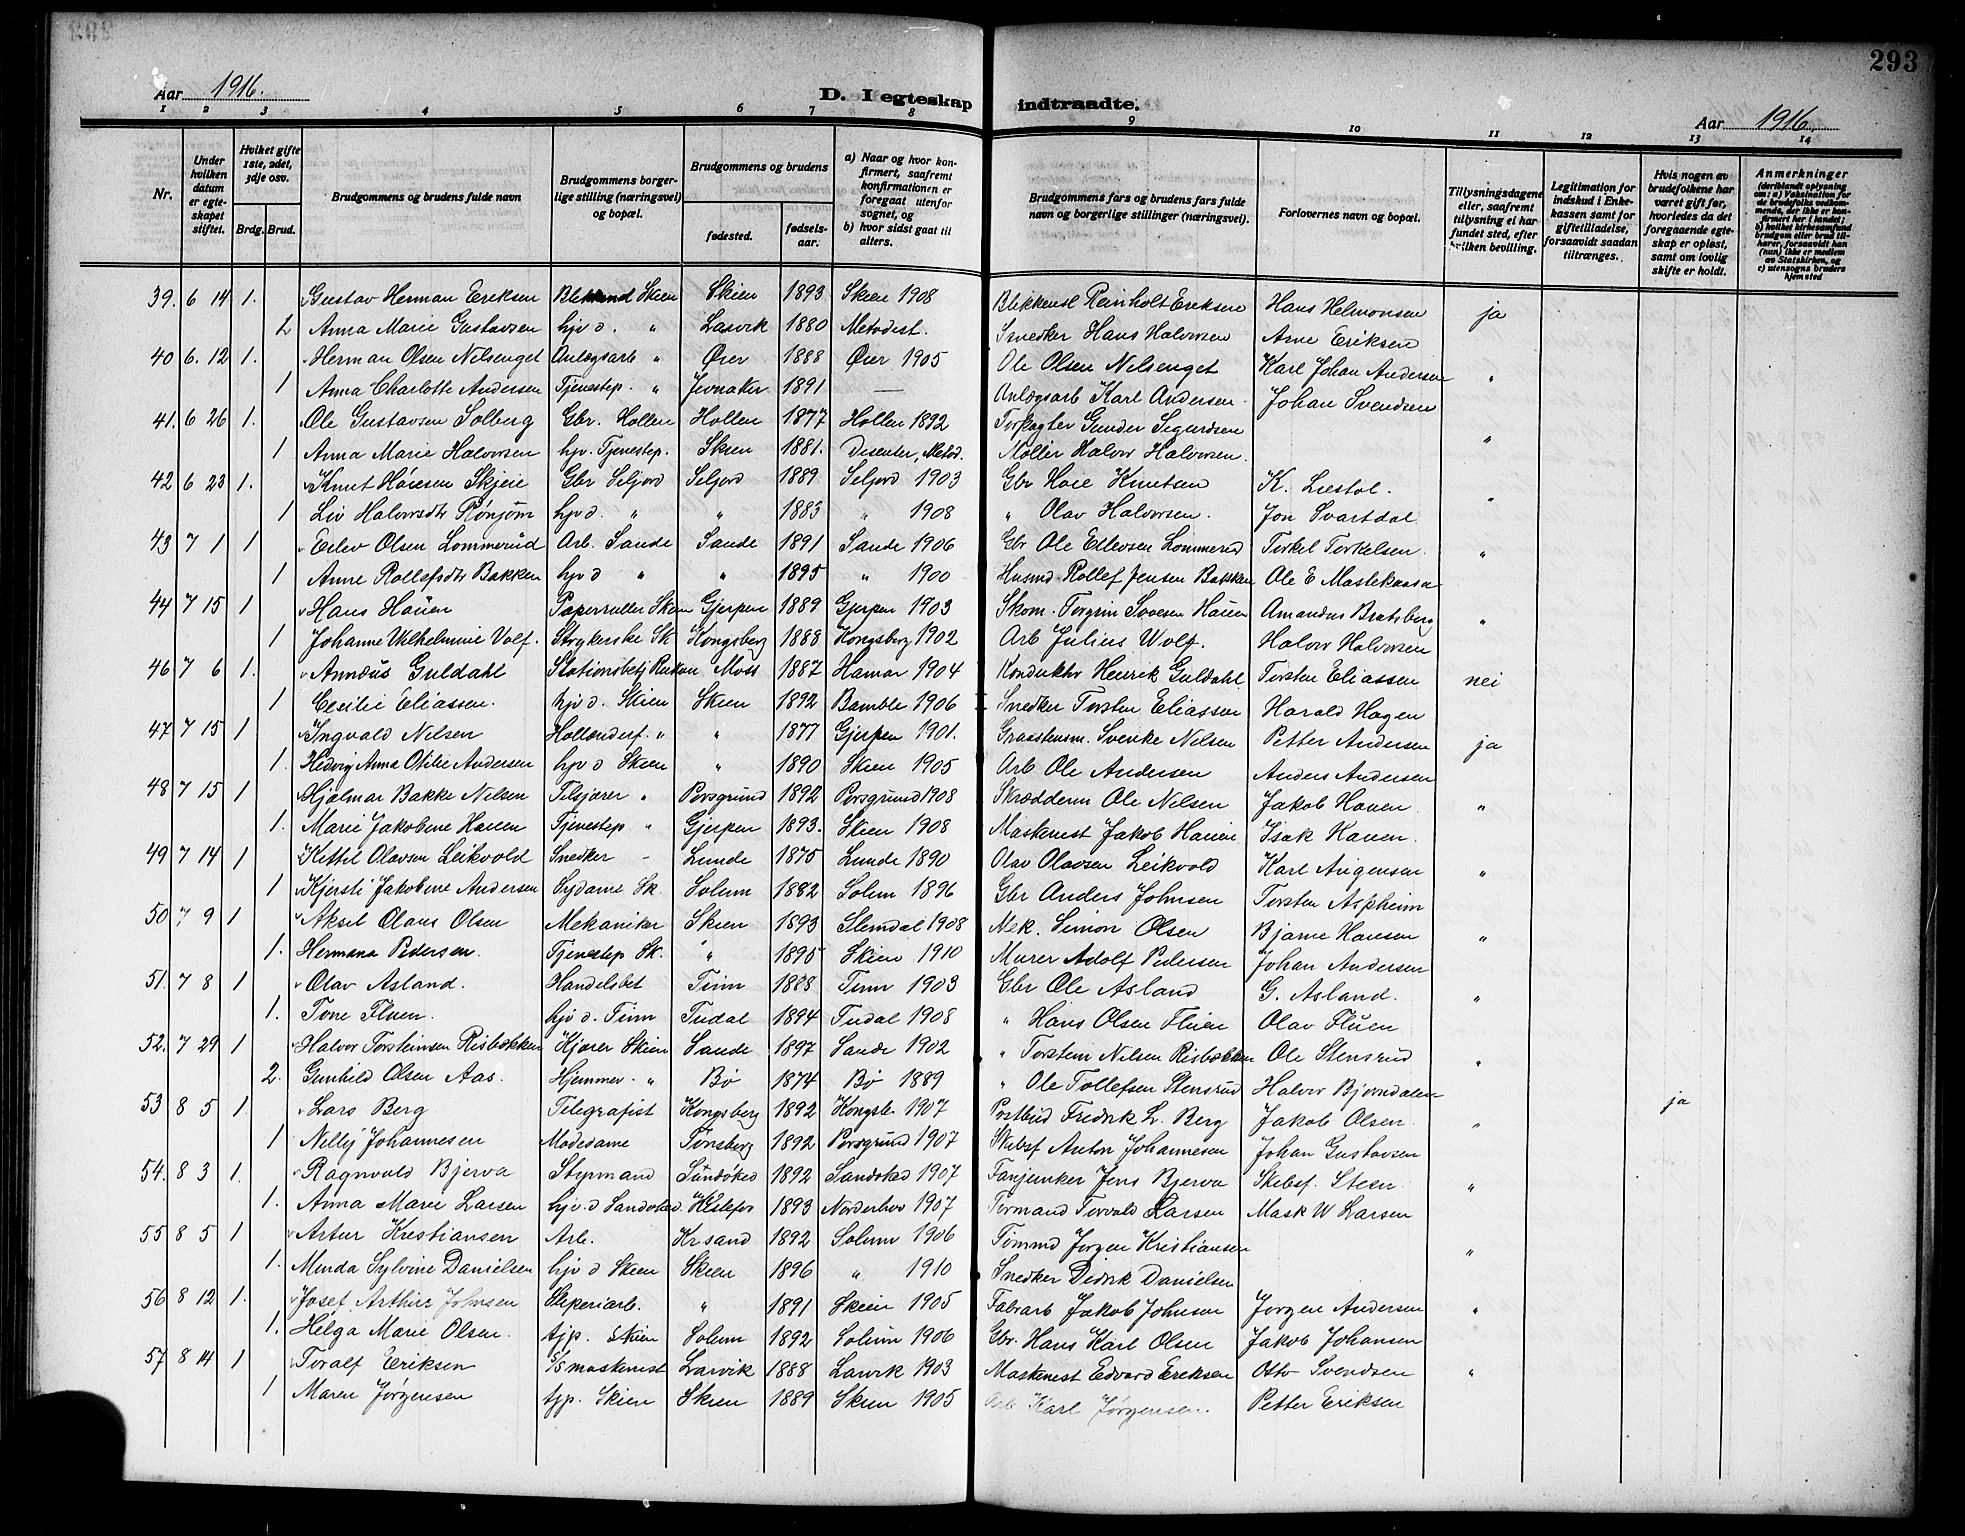 293
Aar 1916. D. I egteskap indtraadte. Aar 1916.
1 2 3 4 5 6 7 8 9 10 11 12 13 14
Nr.
Under hvilken datum er egteskapet stiftet.
Hvilket gifte 1ste, 2det, 3dje osv.
Brdg. Brud.
Brudgommens og brudens fulde navn
Brudgommens borgerlige stilling (næringsvei) og bopæl.
Brudgommens og brudens
fødested. fødselsaar.
a) Naar og hvor konfirmert, saafremt konfirmationen er foregaat utenfor sognet, og
b) hvor sidst gaat til alters.
Brudgommens fars og brudens fars fulde navn og borgerlige stillinger (næringsvei).
Forlovernes navn og bopæl.
Tillysningsdagene eller, saafremt tillysning ei har fundet sted, efter hvilken bevilling.
Legitimation for indskud i Enkekassen samt for giftetilladelse, forsaavidt saadan tiltrænges.
Hvis nogen av brudefolkene har været gift før, hvorledes da det foregaaende egteskap er opløst, samt om lovlig skifte er holdt.
Anmerkninger
(deriblandt oplysning om: a) Vaksination for de brudefolks vedkommende, der ikke er konfirmert her i landet; b) hvilket kirkesamfund brudgom eller brud tilhører, forsaavidt han (hun) ikke er medlem av Statskirken, og c) utensogns bruders hjemsted
39. 6 14 1. Gustav Herman Eriksen Skien Skien 1893 Skien 1908 Blikkensl Reinholt Eriksen Hans Helmonsen ja
2 Anna Marie Gustavsen hjv d. " Larvik 1880 Metodist. Snedker Hans Halvorsen Arne Eriksen
40 6. 12 1. Herman Olsen Nilsenget Anlægsarb " Øier 1888 Øier 1905 Ole Olsen Nilsenget Karl Johan Andersen "
1 Anna Charlotte Andersen Tjenestep. " Jevnaker 1891 — Anlægsarb Karl Andersen Johan Svendsen
41. 6 26 1. Ole Gustavsen Solberg Gbr. Hollen Hollen 1877 Hollen 1892 Gunder Sigurdsen "
1 Anna Marie Halvorsen hjv. Tjenestep. Skien 1881. Disenter, Metod. Møller Halvor Halvorsen.
42 6 23 1. Knut Høiesen Skjeie Gbr Seljord Seljord 1889 Seljord 1903 Gbr Høie Knutsen K. Liestol. "
1 Liv Halvorsdtr Rónjom hjv d. " " 1883 " 1908 " Olav Halvorsen. Jon Svartdal
43 7 1 1 Eilev Olsen Lommerud Arb. Sande Sande 1891 Sande 1906 Gbr Ole Ellevsen Lommerud Torkel Torkelsen. "
1 Anne Rollefsdtr Bakken hjv d " " 1895 " 1900 Husmd Rollef Jensen Bakken Ole E Mastekaasa
44 7 15 1 Hans Hauen Papirruller Skien Gjerpen 1889 Gjerpen 1903 Skom. Torgrim Hauen Amandus Bratsberg "
1 Johanne Vilhelmine Volf. Strykerske Sk Kongsberg 1888 Kongsberg 1902 Arb Julius Wolf. Halvor Halvorsen
46 7 6 1. Annæus Guldahl Stationsbetj Rukan Moss 1887 Hamar 1904 Konduktør Henrik Guldahl. Torsten Eliassen nei
1 Cecilie Eliassen. hjv d. Skien Skien 1892 Bamble 1906 Snedker Torsten Eliassen Harald Hagen
47 7 15 1 Ingvald Nilsen Hollenderf. " " 1877 Gjerpen 1901. Graastensm. Svenke Nilsen Petter Andersen ja
1. Hedvig Anna Otilie Andersen hjv d Skien " 1890 Skien 1905 Arb Ole Andersen Anders Andersen
48 7 15 1 Hjalmar Bakke Nilsen " Porsgrund 1892 Porsgrund 1908 Skrædderm Ole Nilsen Jakob Hauen "
1. Marie Jakobene Hauen Tjenestep " Gjerpen 1893. Skien 1908 Maskinest Jakob Hauen Isak Hauen.
49 7 14 1 Kittil Olavsen Leikvold Snedker - Lunde 1875 Lunde 1890 Olav Olavsen Leikvold Karl "
1 Kjersti Jakobene Andersen Sydame Sk. Solum 1882 Solum 1896 Gbr Anders Johnsen Torsten Aspheim
50 7. 9 1 Aksel Olaus Olsen Mekaniker Skien 1893 Slemdal 1908 Mek. Simon Olsen Bjarne Hansen "
1. Hermana Pedersen. Tjenestep Sk. " 1895 Skien 1910 Murer Adolf Pedersen Johan Andersen
51. 7 8 1 Olav Asland. Handelsbet Tinn 1888 Tinn 1903 Gbr Ole Asland G. Asland. "
1. Tone Fluen. hjv d. Tinn Tudal 1894 Tudal 1908 " Hans Olsen Fluen Olav Fluen
52. 7 29 1 Halvor Torsteinsen Risbakken Kjører Skien Sande 1897 Sande 1902 " Torstein Nilsen Risbakken Ole Stensrud "
2. Gunhild Olsen Aas. Hjemmev. " Bø 1874 Bø 1889 " Ole Tollefsen Stensrud Halvor Bjørndalen ja
53 8 5 1. Lars Berg. Telegrafist Kongsberg 1892 Kongsb. 1907 Postbud Fredrik L. Berg Jakob Olsen. "
1 Nelly Johannesen Modedame Tønsberg 1892 Porsgrund 1907 Skibsf Anton Johannesen Johan Gustavsen
54. 8 3 1. Ragnvald Bjerva Styrmand Sandøked 1892 Sandoked 1907 Fanjunker Jens Bjerva Skibsf. Steen. "
1. Anna Marie Larsen hjv. d Sandoked. 1893 Norderhov 1907 Formand Torvald Larsen Mask W Larsen
55 8 5 1 Artur Kristiansen Arb. Kr.sand 1892 Solum 1906 Tømmd Jørgen Kristiansen "
1. Minda Sylvine Danielsen hjv d Skien Skien 1896 " 1910 Snedker Didrik Danielsen
56 8 12 1. Josef Arthur Johnsen Sliperiarb. " 1891 Skien 1905 Fabrarb Jakob Johnsen Jørgen Andersen "
1. Helga Marie Olsen. tjp. Skien Solum 1892 Solum 1906 Gbr. Hans Karl Olsen Jakob Johansen
57 8 14 1 Toralf Eriksen S/S maskinest Larvik 1888 Larvik 1903 Maskinest Edvard Eriksen Otto Svendsen "
1 Maren Jørgensen tjp. Skien Skien 1889 Skien 1905 Arb Karl Jørgensen. Petter Eriksen